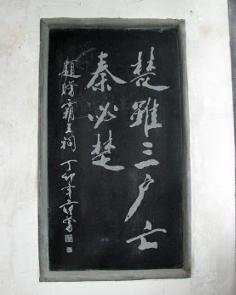 楚雖三户亡
秦必楚
題號霸王祠 丁卯年